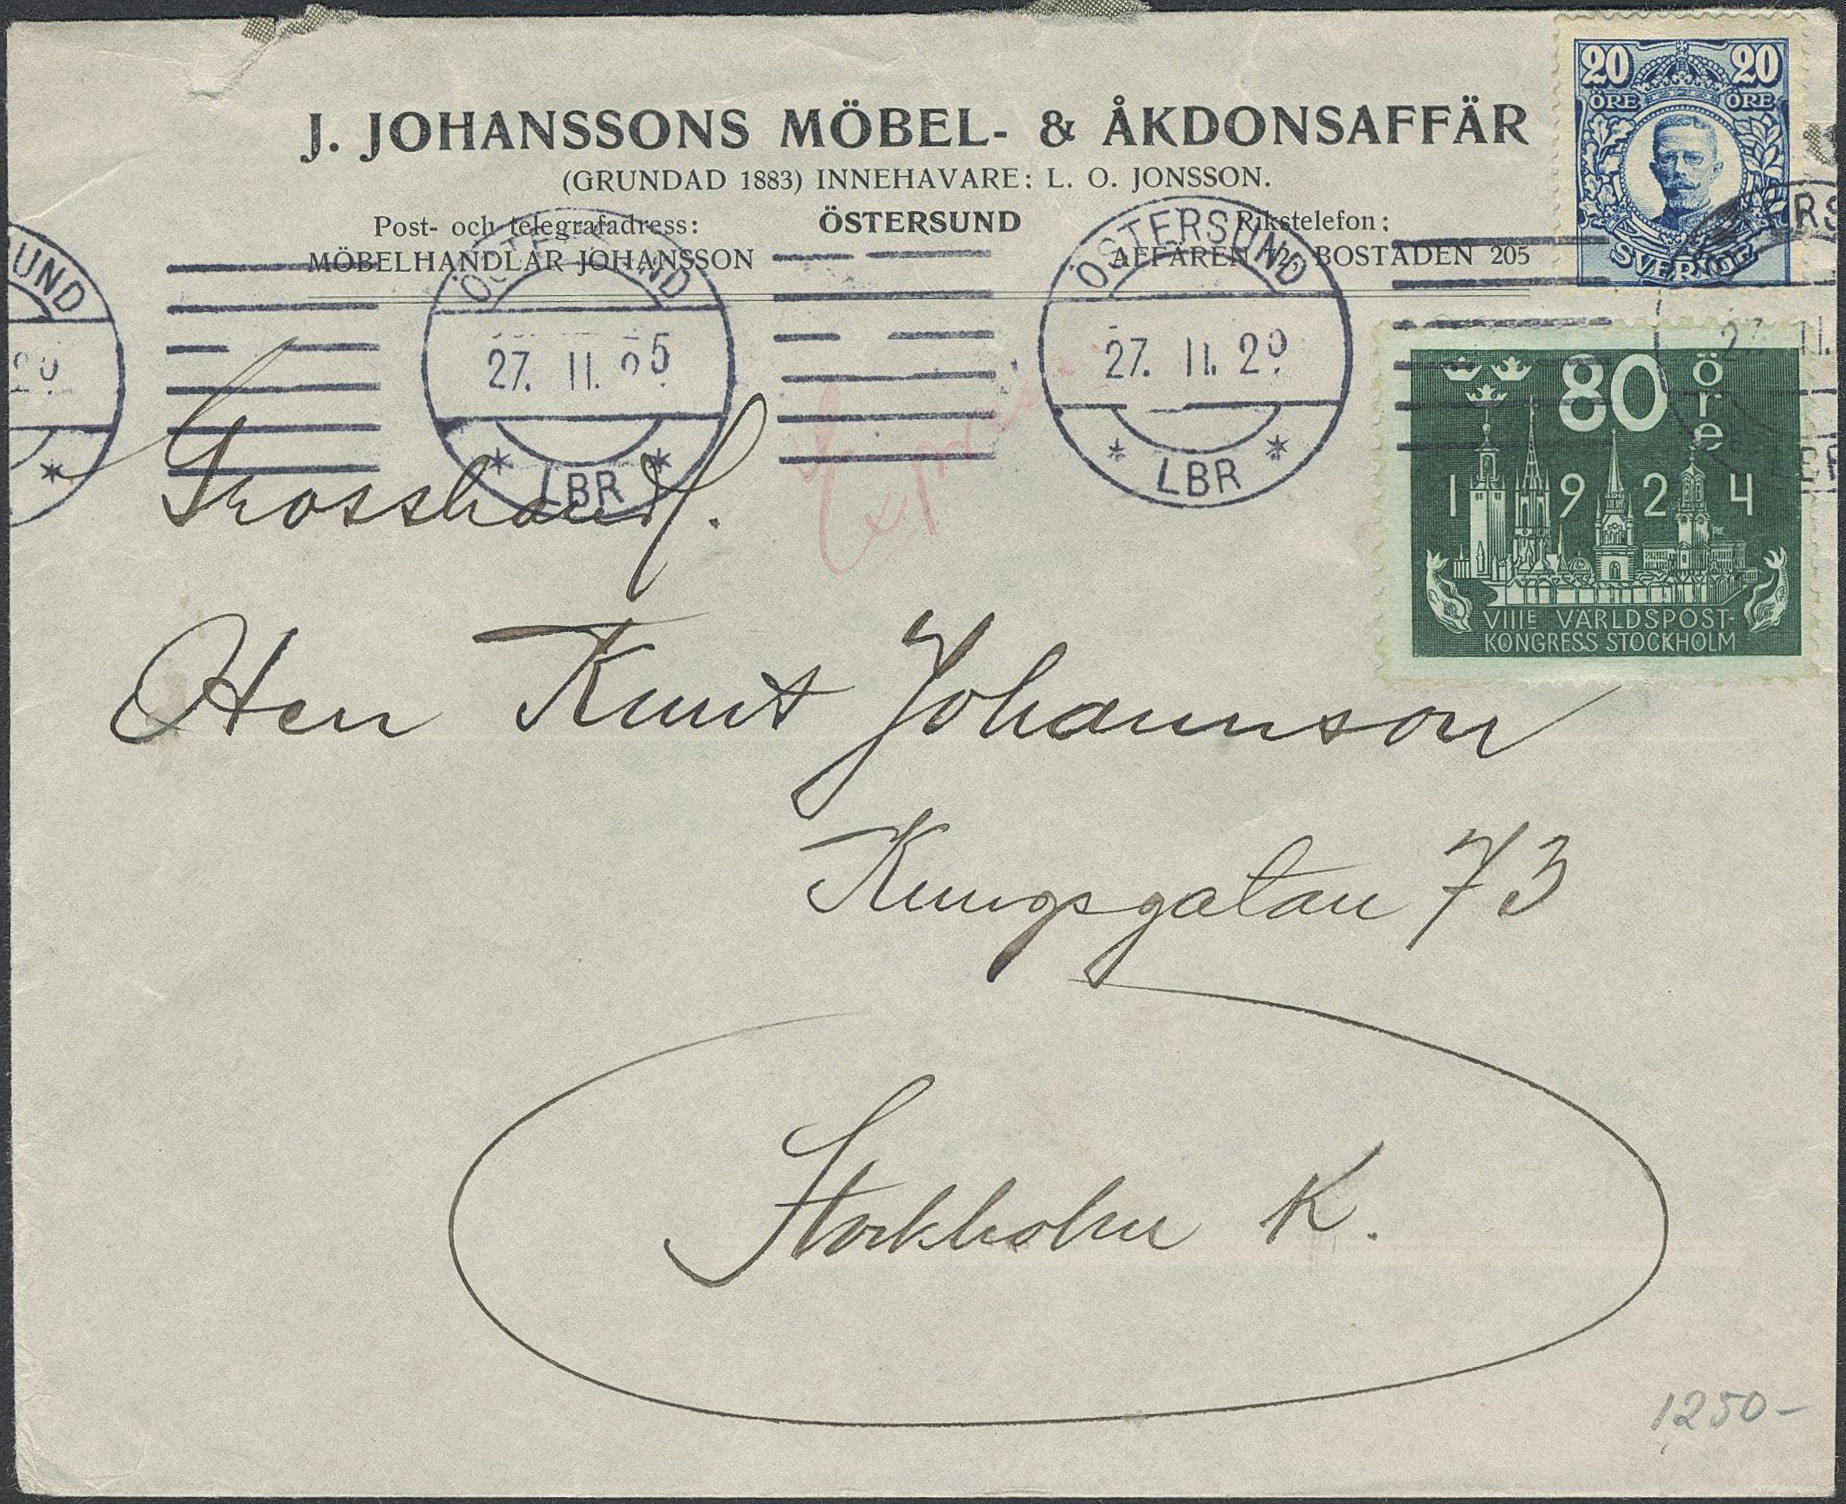 J. JOHANSSONS MÖBEL- & ÅKDONSAFFÄR
(GRUNDAD 1883) INNEHAVARE: L. O. JONSSON.
Post- och telegrafadress: ÖSTERSUND Rikstelefon:
MÖBELHANDLAR JOHANSSON AFFÄREN 72, BOSTADEN 205
20 20
ÖRE ÖRE
SVERIGE
UND
ÖSTERSUND
27. II. 25
LBR
ÖSTERSUND
27. II. 2
LBR
ERS
27. II.
LBR
80 öre
1924
VIIIE VÄRLDSPOST-
KONGRESS STOCKHOLM
Express
Grosshandl.
Herr Knut Johannson
Kungsgatan 73
Stockholm K.
1250-